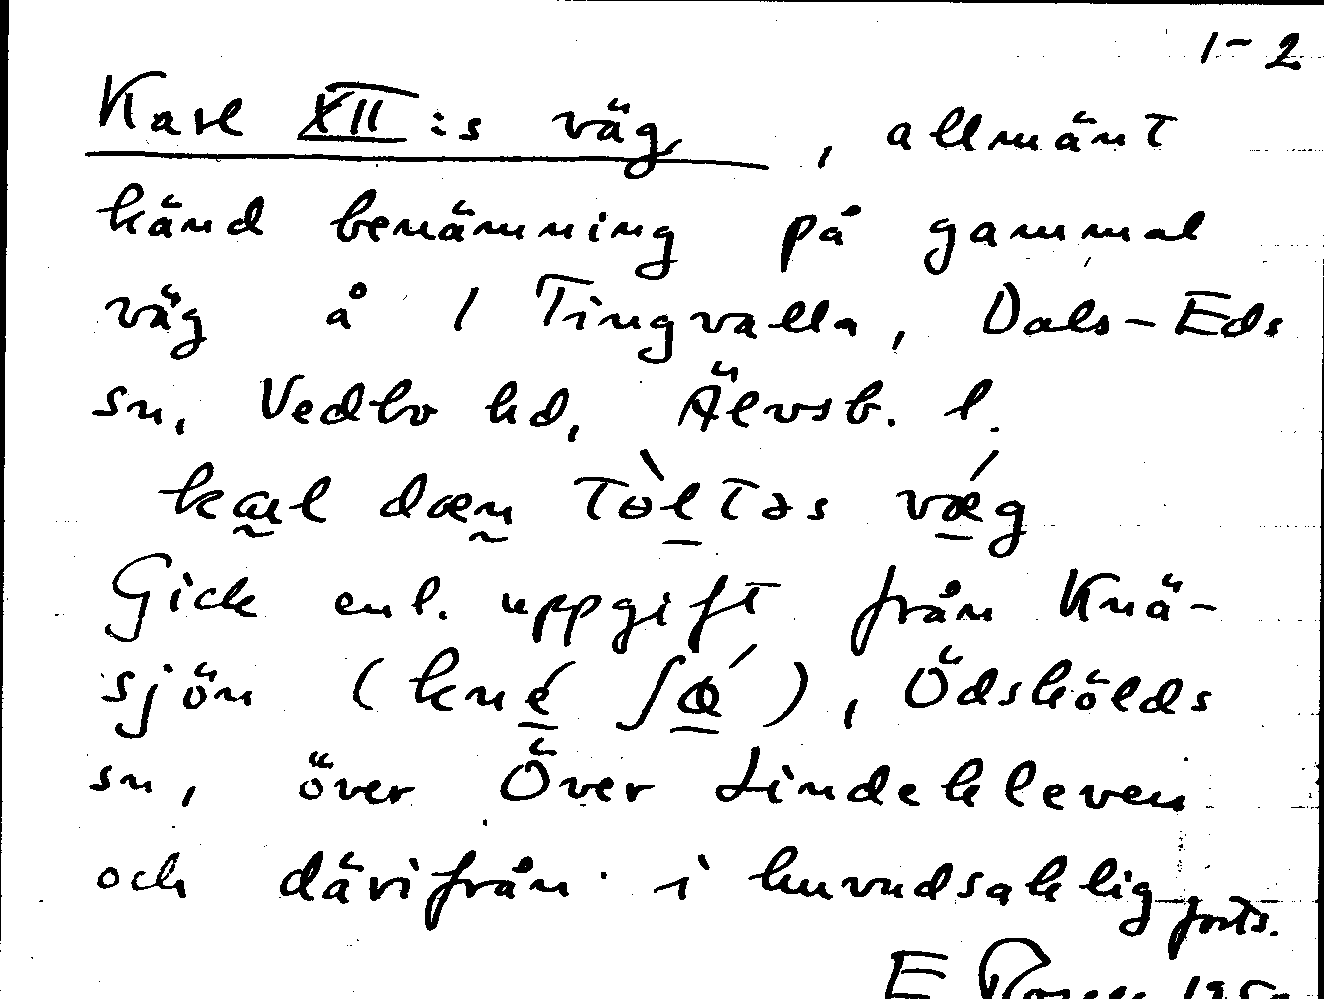 1-2
Karl XII:s väg, allmänt
känd benämning på gammal
väg å 1 Tingvalla, Dals-Eds
sn, Vedbo hd, Älvsb. l.
Gick enl. uppgift från Knä-
sjön (kné ʃǿ), Ödskölds
sn, över Över Lindekleven
och därifrån i huvudsaklig
forts.
E